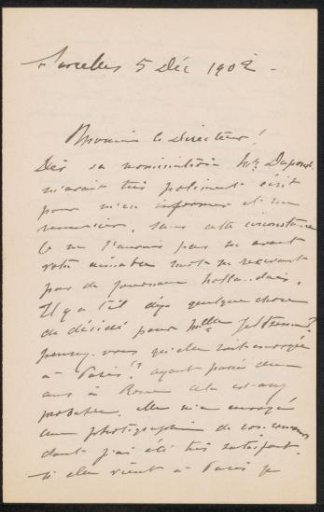 5 Déc 1902 -
Monsieur le Directeur!
Dès sa nomination Mr Dupont
m'avait très poliment écrit
pour m'en informer et me
remercier, sans cette circonstance
je ne l'aurais pas su avant
votre aimable mot ne recevant
pas de journaux hollandais.
Il y a t'il déjà quelque chose
de décidé pour Mlle
pensez vous qu'elle soit envoyée
à Paris? ayant passé deux
ans à Rome cela est assez
probable. Elle m'a envoyé
une photographie de son concours
dont j'ai été très satisfait.
si elle vient à Paris je